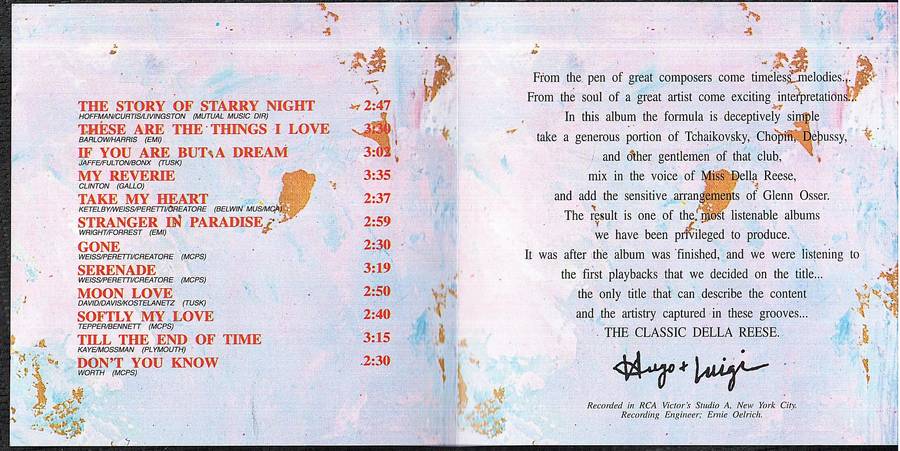 THE STORY OF STARRY NIGHT 2:47
HOFFMAN/CURTIS/LIVINGSTON (MUTUAL MUSIC DIR)
THESE ARE THE THINGS I LOVE 3:30
BARLOW/HARRIS (EMI)
IF YOU ARE BUT A DREAM 3:02
JAFFE/FULTON/BONX (TUSK)
MY REVERIE 3:35
CLINTON (GALLO)
TAKE MY HEART 2:37
KETELBY/WEISS/PERETTI/CREATORE (BELWIN MUS/MCA)
STRANGER IN PARADISE 2:59
WRIGHT/FORREST (EMI)
GONE 2:30
WEISS/PERETTI/CREATORE (MCPS)
SERENADE 3:19
WEISS/PERETTI/CREATORE (MCPS)
MOON LOVE 2:50
DAVID/DAVIS/KOSTELANETZ (TUSK)
SOFTLY MY LOVE 2:40
TEPPER/BENNETT (MCPS)
TILL THE END OF TIME 3:15
KAYE/MOSSMAN (PLYMOUTH)
DON'T YOU KNOW 2:30
WORTH (MCPS)
From the pen of great composers come timeless melodies...
From the soul of a great artist come exciting interpretations...
In this album the formula is deceptively simple
take a generous portion of Tchaikovsky, Chopin, Debussy,
and other gentlemen of that club,
mix in the voice of Miss Della Reese,
and add the sensitive arrangements of Glenn Osser.
The result is one of the most listenable albums
we have been privileged to produce.
It was after the album was finished, and we were listening to
the first playbacks that we decided on the title...
the only title that can describe the content
and the artistry captured in these grooves...
THE CLASSIC DELLA REESE.
Hugo + Luigi
Recorded in RCA Victor's Studio A, New York City.
Recording Engineer; Ernie Oelrich.